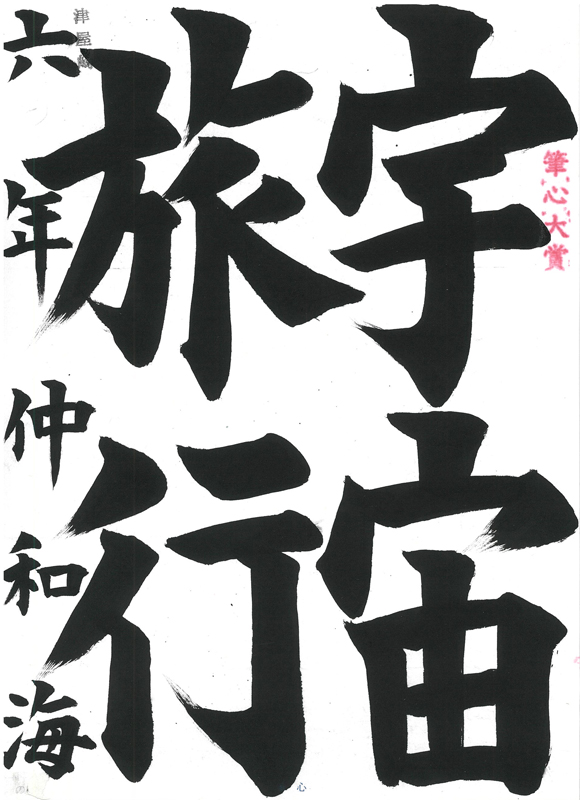 宇宙
旅行
六年 仲和海
筆心大賞
津屋